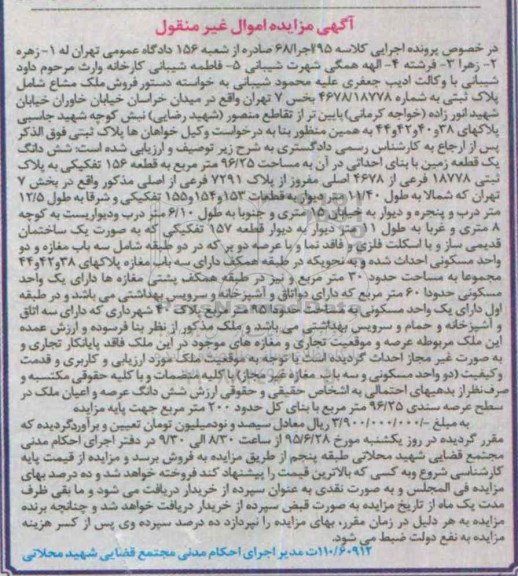 آگهی مزایده اموال غیر منقول
در خصوص پرونده اجرایی کلاسه ۷۹۵اجرا/۶۸ صادره از شعبه ۱۵۶ دادگاه عمومی تهران له ۱- زهره
۲- زهرا ۳- فرشته ۴- الهه همگی شهرت شیبانی ۵- فاطمه شیبانی کارخانه وارث مرحوم داود
شیبانی با وکالت ادیب جعفری علیه محمود شیبانی به خواسته دستور فروش ملک مشاع شامل
پلاک ثبتی به شماره ۴۶۷۸/۱۸۷۷۸ بخس ۷ تهران واقع در میدان خراسان خیابان خاوران خیابان
شهید انور زاده (خواجه کرمانی) پایین تر از تقاطع منصور (شهید رضایی) نبش کوچه شهید جاسبی
پلاکهای ۳۸و۴۰و۴۲و۴۴ به همین منظور بنا به درخواست وکیل خواهان ها پلاک ثبتی فوق الذکر
پس از ارجاع به کارشناس رسمی دادگستری به شرح زیر توصیف و ارزیابی شده است: شش دانگ
یک قطعه زمین با بنای احداثی در آن به مساحت ۹۶/۲۵ متر مربع به قطعه ۱۵۶ تفکیکی به پلاک
ثبتی ۱۸۷۷۸ فرعی از ۴۶۷۸ اصلی مفروز از پلاک ۷۲۹۱ فرعی از اصلی مذکور واقع در بخش ۷
تهران که شمالا به طول ۱۱/۴۰ متر دیوار به قطعات ۱۵۳و۱۵۴و۱۵۵ تفکیکی و شرقا به طول ۱۲/۵
متر درب و پنجره و دیوار به خیابان ۱۵ متری و جنوبا به طول ۶/۱۰ متر درب ودیواریست به کوچه
۸ متری و غربا به طول ۱۱ متر دیوار به دیوار قطعه ۱۵۷ تفکیکی که به صورت یک ساختمان
قدیمی ساز و با اسکلت فلزی و فاقد نما و با عرصه دو بر که در دو طبقه شامل سه باب مغازه و دو
واحد مسکونی احداث شده و به نحویکه در طبقه همکف دارای سه باب مغازه پلاکهای ۳۸و۴۲و۴۴
مجموعا به مساحت حدود ۳۰ متر مربع و نیز در طبقه همکف پشتی مغازه ها دارای یک واحد
مسکونی حدودا ۶۰ متر مربع که دارای دواتاق و آشپزخانه و سرویس بهداشتی می باشد و در طبقه
اول دارای یک واحد مسکونی به مساحت حدودا ۹۵ متر مربع پلاک ۴۰ شهرداری که دارای سه اتاق
و آشپزخانه و حمام و سرویس بهداشتی می باشد و ملک مذکور از نظر بنا فرسوده و ارزش عمده
این ملک مربوطه عرصه و موقعیت تجاری و مغازه های موجود در این ملک فاقد پایانکار تجاری و
به صورت غیر مجاز احداث گردیده است با توجه به موقعیت ملک مورد ارزیابی و کاربری و قدمت
و کیفیت (دو واحد مسکونی و سه باب مغازه غیر مجاز) با کلیه منضمات و با کلیه حقوقی مکتسبه و
صرف نظر از بدهیهای احتمالی به اشخاص حقیقی و حقوقی ارزش شش دانگ عرصه و اعیان ملک در
سطح عرصه سندی ۹۶/۲۵ متر مربع با بنای کل حدود ۲۰۰ متر مربع جهت پایه مزایده
به مبلغ -/۳/۹۰۰/۰۰۰/۰۰۰ ریال معادل سیصد و نودمیلیون تومان تعیین و برآوردگردیده که
مقرر گردیده در روز یکشنبه مورخ ۹۵/۶/۲۸ از ساعت ۸/۳۰ الی ۹/۳۰ در دفتر اجرای احکام مدنی
مجتمع قضایی شهید محلاتی طبقه پنجم از طریق مزایده به فروش برسد و مزایده از قیمت پایه
کارشناسی شروع وبه کسی که بالاترین قیمت را پیشنهاد کند فروخته خواهد شد و ده درصد بهای
مزایده فی المجلس و به صورت نقدی به عنوان سپرده از خریدار دریافت می شود و ما بقی ظرف
مدت یک ماه از تاریخ مزایده به صورت قبض سپرده از خریدار دریافت خواهد شد و چنانچه برنده
مزایده به هر دلیل در زمان مقرر، بهای مزایده را نپردازد ده درصد سپرده وی پس از کسر هزینه
مزایده به نفع دولت ضبط می شود.
۱۱۰/۶۰۹۱۲ت مدیر اجرای احکام مدنی مجتمع قضایی شهید محلاتی